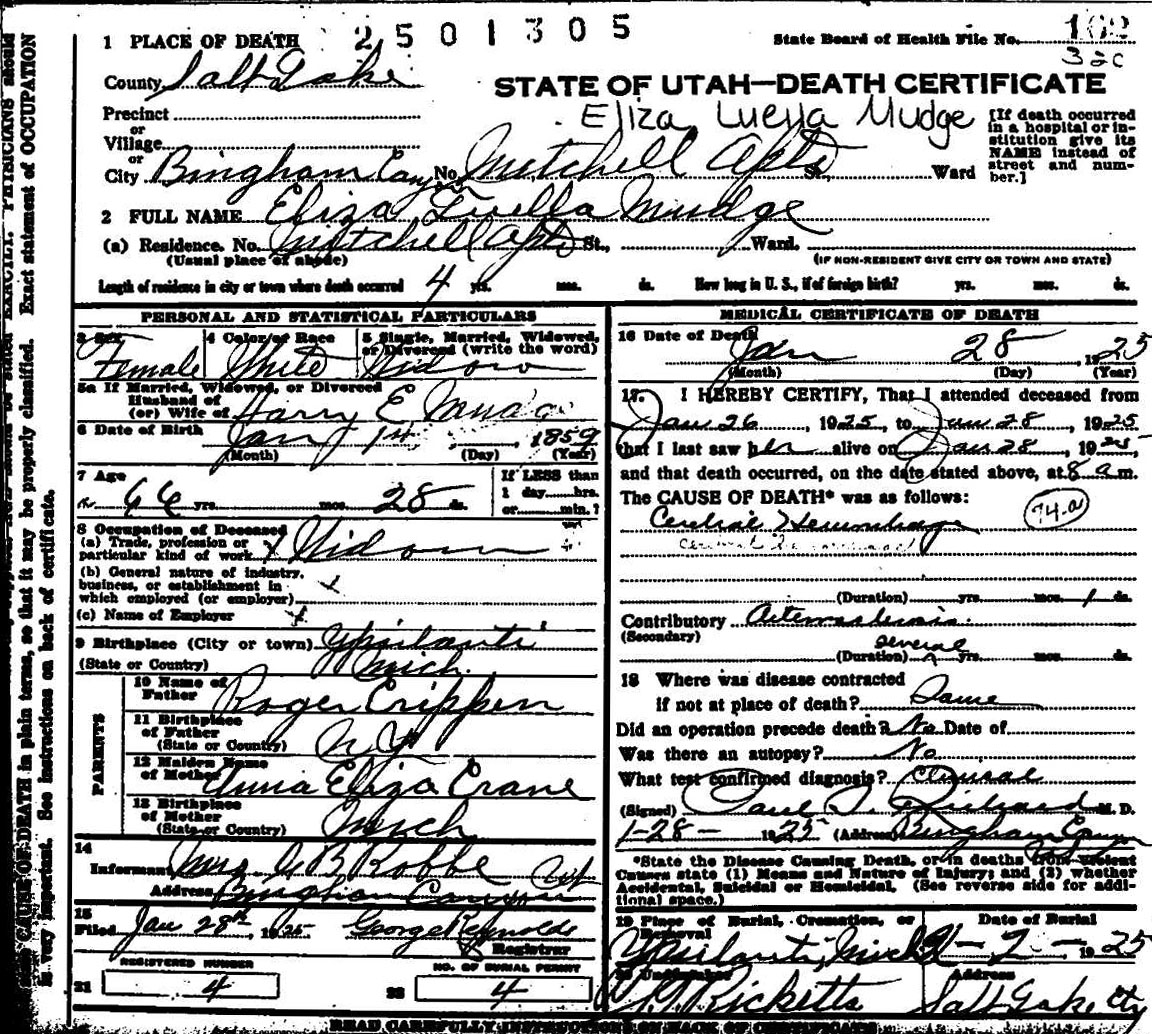 1 PLACE OF DEATH 2501305 State Board of Health File No. 162
32c
County Salt Lake
STATE OF UTAH—DEATH CERTIFICATE
Precinct
Eliza Luella Mudge
[If death occurred in a hospital or institution give its NAME instead of street and number.]
or
Village
or
City Bingham Canyon No. Mitchell Apts St., Ward
2 FULL NAME Eliza Luella Mudge
(a) Residence. No. Mitchell Apts St., Ward.
(Usual place of abode) (IF NON-RESIDENT GIVE CITY OR TOWN AND STATE)
Length of residence in city or town where death occurred 4 yrs. mos. ds. How long in U. S., if of foreign birth? yrs. mos. ds.
PERSONAL AND STATISTICAL PARTICULARS
3 Sex 4 Color or Race 5 Single, Married, Widowed,
or Divorced (write the word)
Female White Widow
5a If Married, Widowed, or Divorced
Husband of
(or) Wife of Harry E Mudge
6 Date of Birth Jan 1st, 1859
(Month) (Day) (Year)
7 Age If LESS than
66 yrs. mos. 28 ds. 1 day hrs.
or min.?
8 Occupation of Deceased
(a) Trade, profession or
particular kind of work Widow
(b) General nature of industry,
business, or establishment in
which employed (or employer)
(c) Name of Employer
9 Birthplace (City or town) Ypsilanti
(State or Country) Mich.
PARENTS
10 Name of
Father Roger Crippen
11 Birthplace
of Father
(State or Country) N Y
12 Maiden Name
of Mother Anna Eliza Crane
13 Birthplace
of Mother
(State or Country) Mich
14
Informant Mrs. G B Robbe
Address Bingham Canyon Ut
15
Filed Jan 28th, 1925 George Reynolds
Registrar
REGISTERED NUMBER NO. OF BURIAL PERMIT
21 4 22 4
MEDICAL CERTIFICATE OF DEATH
16 Date of Death Jan 28 1925
(Month) (Day) (Year)
17. I HEREBY CERTIFY, That I attended deceased from
Jan 26, 1925, to Jan 28, 1925
that I last saw her alive on Jan 28, 1925,
and that death occurred, on the date stated above, at 8 a m.
The CAUSE OF DEATH* was as follows:
Cerebral Hemorrhage 74.a
(Duration) yrs. mos. 1 ds.
Contributory Arteriosclerosis.
(Secondary) several
(Duration) yrs. mos. ds.
18 Where was disease contracted
if not at place of death? Same
Did an operation precede death? No Date of
Was there an autopsy? No
What test confirmed diagnosis? Clinical
(Signed) Paul S. Richards M. D.
1-28- 1925 (Address) Bingham Canyon
*State the Disease Causing Death, or in deaths from Violent
Causes state (1) Means and Nature of Injury; and (2) whether
Accidental, Suicidal or Homicidal. (See reverse side for additional space.)
19 Place of Burial, Cremation, or Removal Date of Burial
Ypsilanti, Mich 2- 1925
20 Undertaker Address
Ricketts Salt Lake Cty
READ CAREFULLY INSTRUCTIONS ON BACK OF CERTIFICATE
PHYSICIANS should
Exact statement of OCCUPATION
CAUSE OF DEATH in plain terms, so that it may be properly classified.
is very important. See instructions on back of certificate.